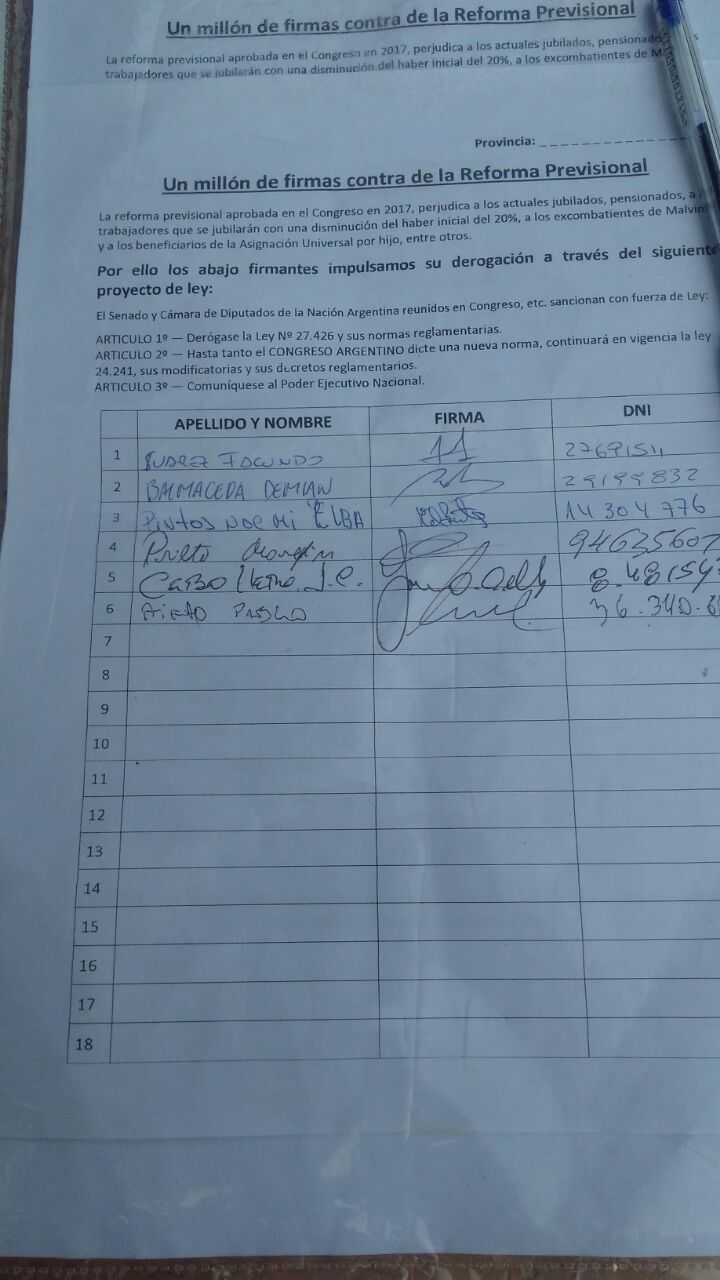 Un millón de firmas contra de la Reforma Previsional
La reforma previsional aprobada en el Congreso en 2017, perjudica a los actuales jubilados, pensionado s
trabajadores que se jubilarán con una disminución del haber inicial del 20%, a los excombatientes de M
Provincia: _ _ _ _ _ _ _ _ _ _ _ _ _ _
Un millón de firmas contra de la Reforma Previsional
La reforma previsional aprobada en el Congreso en 2017, perjudica a los actuales jubilados, pensionados, a
trabajadores que se jubilarán con una disminución del haber inicial del 20%, a los excombatientes de Malvin
y a los beneficiarios de la Asignación Universal por hijo, entre otros.
Por ello los abajo firmantes impulsamos su derogación a través del siguiente
proyecto de ley:
El Senado y Cámara de Diputados de la Nación Argentina reunidos en Congreso, etc. sancionan con fuerza de Ley:
ARTICULO 1º — Derógase la Ley Nº 27.426 y sus normas reglamentarias.
ARTICULO 2º — Hasta tanto el CONGRESO ARGENTINO dicte una nueva norma, continuará en vigencia la ley
24.241, sus modificatorias y sus decretos reglamentarios.
ARTICULO 3º — Comuníquese al Poder Ejecutivo Nacional.
APELLIDO Y NOMBRE FIRMA DNI
1 SUAREZ FACUNDO 27691511
2 BALMACEDA DEMIAN 29199832
3 PINTOS NOEMI ELBA 14304776
4 Prieto 94635607
5 J.C. 8.48154
6 PABLO 36.340.6
7
8
9
10
11
12
13
14
15
16
17
18